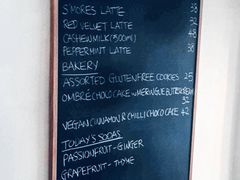 S'MORES LATTE 38
RED VELVET LATTE 32
CASHEWMILK (300ml) 48
PEPPERMINT LATTE 38
BAKERY
ASSORTED GLUTENFREE COOKIES 25
OMBRÉ CHOCO CAKE W MERINGUE BUTTERCREAM
VEGAN CINNAMON & CHILLI CHOCO CAKE 42
TODAY'S SODAS
PASSIONFRUIT - GINGER
GRAPEFRUIT - THYME